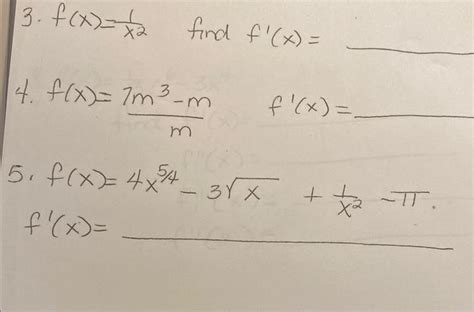 3. f(x)=1/x² find f'(x)= ____
4. f(x)=7m³-m/m f'(x)= ____
5. f(x)=4x^5/4 - 3√x + 1/x² - π.
f'(x)= ____